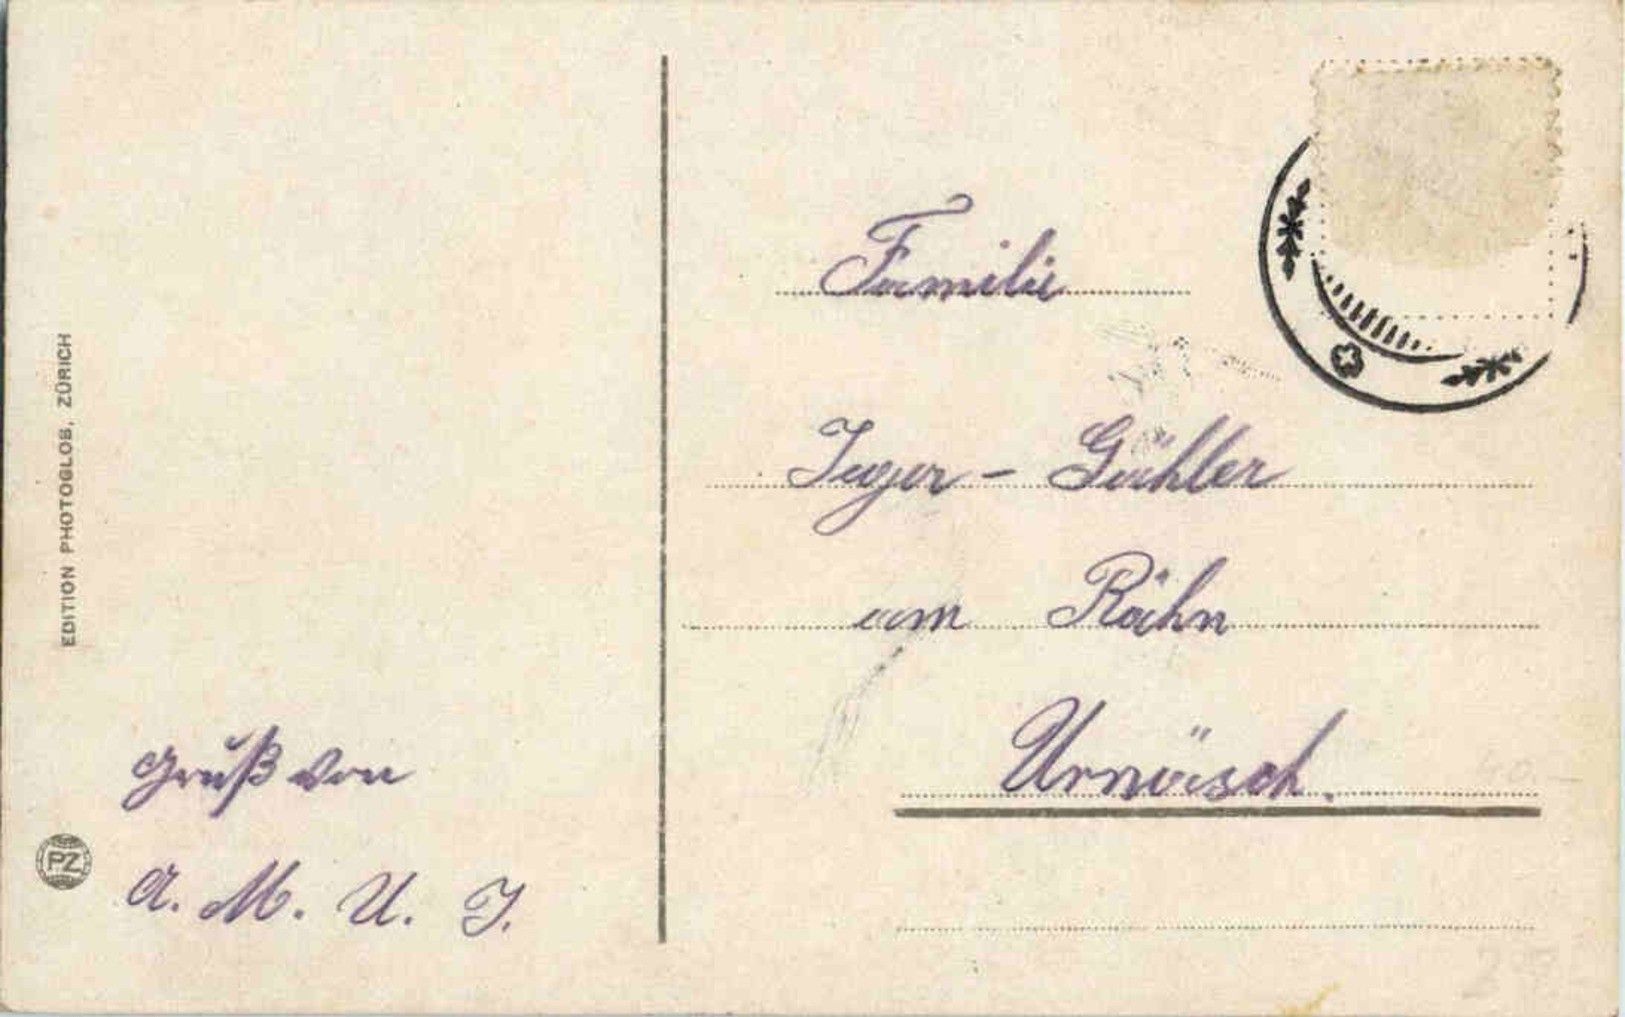 EDITION PHOTOGLOB, ZÜRICH
PZ
Gruß von
A. M. U. J.
Familie
Jager - Gähler
am Rähn
Urnäsch.
40.-